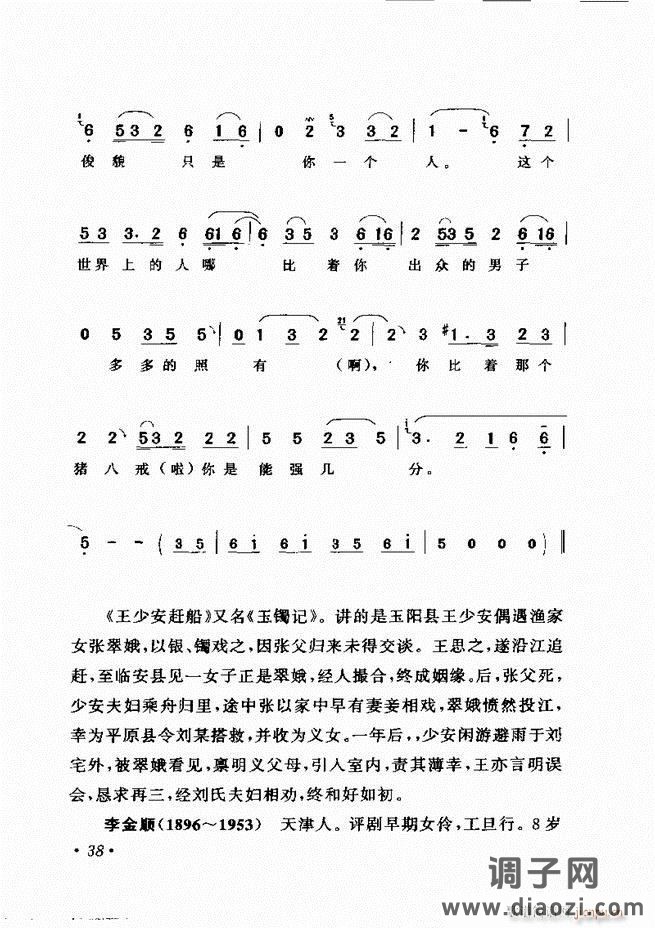 6 5 3 2 6 1 6 | 0 2 3 3 2 | 1 - 6 7 2 |
俊貌 只是 你一个 人。 这个
5 3 3· 2 6 6 1 6 | 6 3 5 3 6 1 6 | 2 5 3 5 2 6 1 6 |
世界上的人哪 比着你 出众的男子
0 5 3 5 5 | 0 1 3 2 2 | 2 3 #1· 3 2 3 |
多多的照 有 (啊), 你比着那个
2 2 5 3 2 2 2 | 5 5 2 3 5 | 3· 2 1 6 6 |
猪八戒(啦)你是 能强几 分。
5 - - (3 5 | 6 i 6 i 3 5 6 i | 5 0 0 0) ‖
《王少安赶船》又名《玉镯记》。讲的是玉阳县王少安偶遇渔家
女张翠娥,以银、镯戏之,因张父归来未得交谈。王思之,遂沿江追
赶,至临安县见一女子正是翠娥,经人撮合,终成姻缘。后,张父死,
少安夫妇乘舟归里,途中张以家中早有妻妾相戏,翠娥愤然投江,
幸为平原县令刘某搭救,并收为义女。一年后,,少安闲游避雨于刘
宅外,被翠娥看见,禀明义父母,引入室内,责其薄幸,王亦言明误
会,恳求再三,经刘氏夫妇相劝,终和好如初。
李金顺(1896～1953) 天津人。评剧早期女伶,工旦行。8岁
·38·
调子网
www.diaozi.com